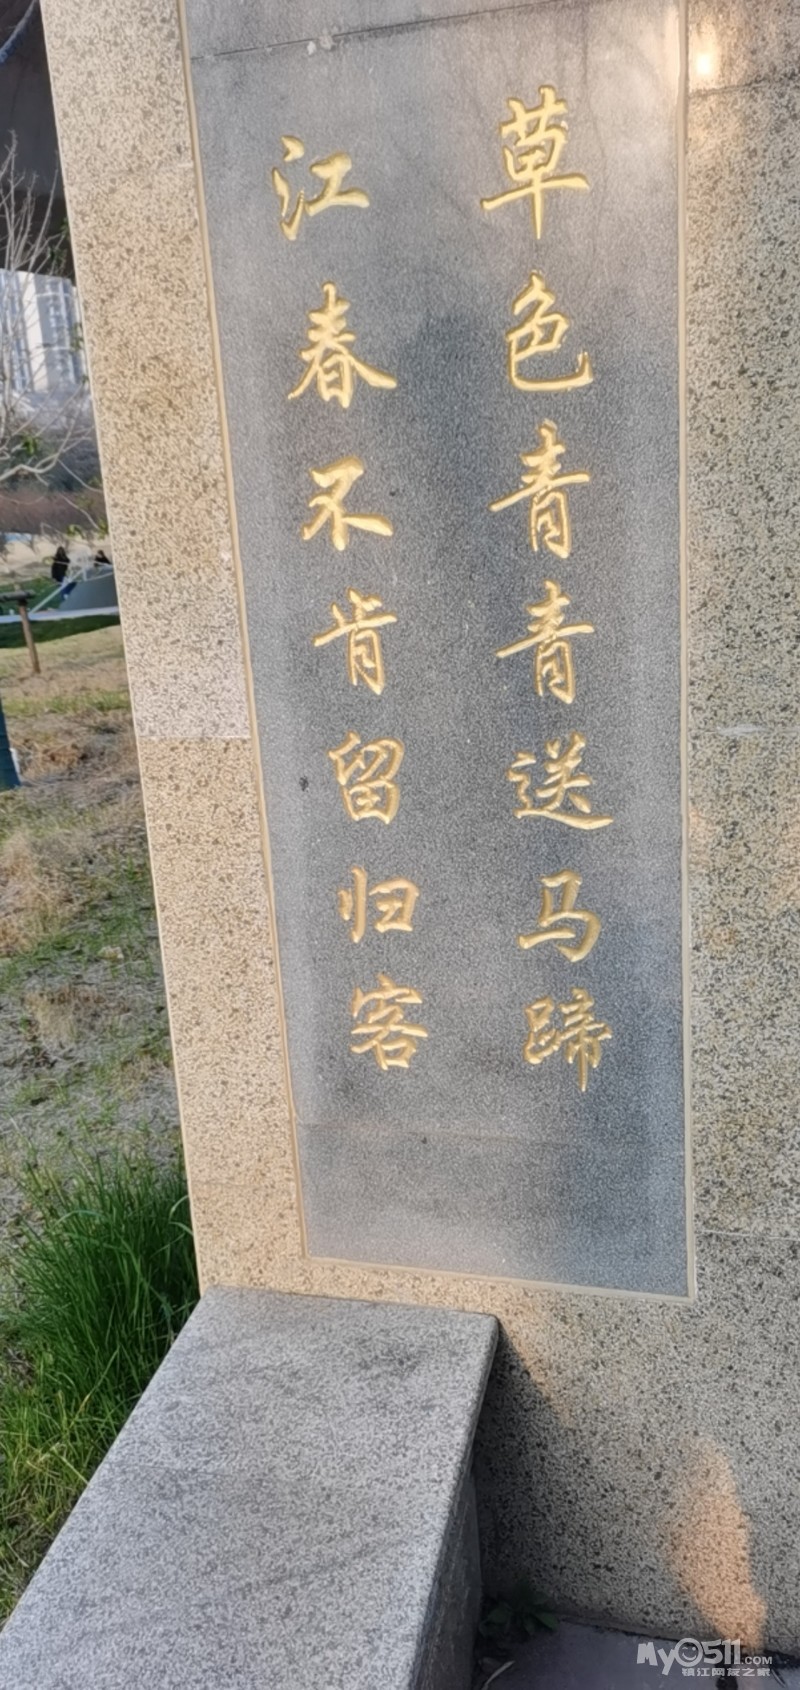 草色青青送马蹄
江春不肯留归客
MY0511.COM
镇江网友之家